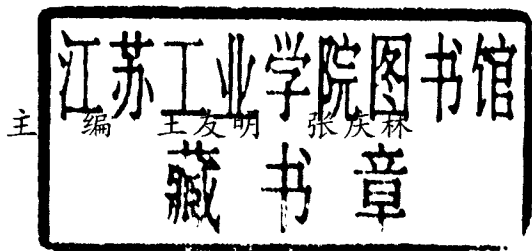 江苏工业学院图书馆
主 编 王友明 张庆林
藏书章